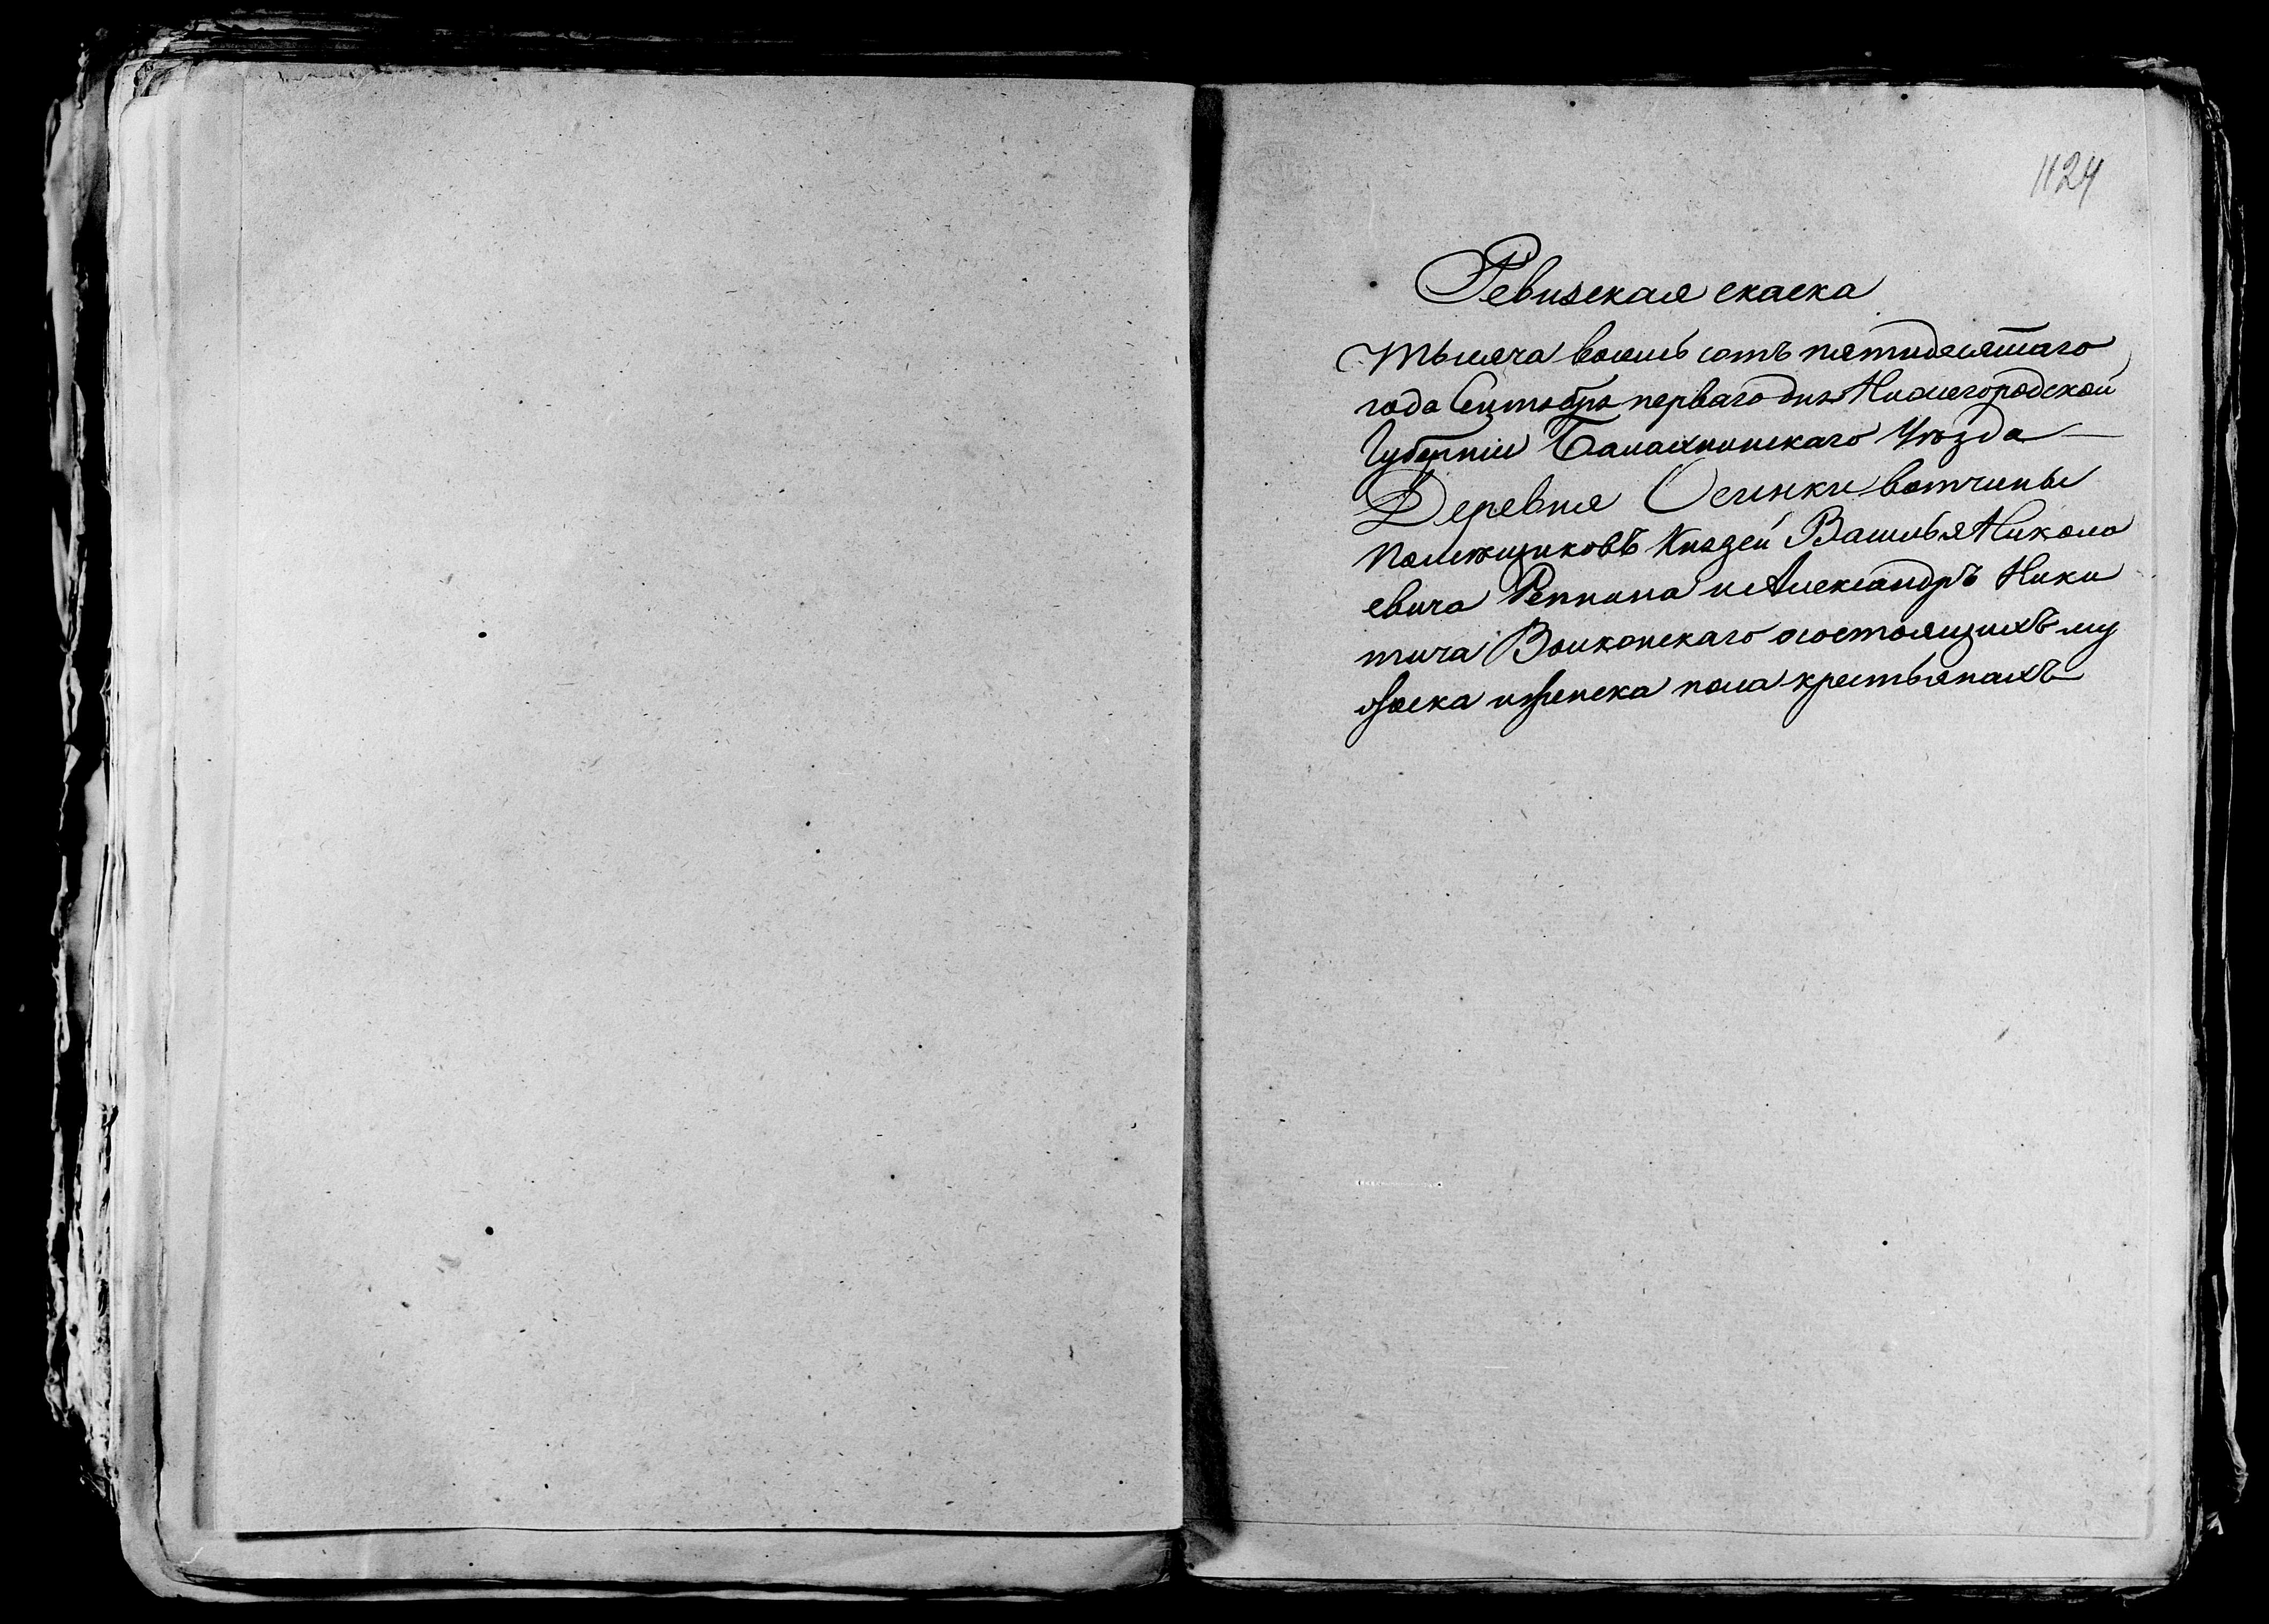 1124
Ревизская скаска
тысяча восемь сотъ пятидесятаго
года Сентября перваго дня Нижегородской
Губерніи Балахнинскаго Уѣзда
Деревни Осинки вотчины
Помѣщиковъ Князей Василья Николо
евича Репнина и Александръ Ники
тича Волконскаго осостоящихъ му
жеска и женска пола крестьянахъ